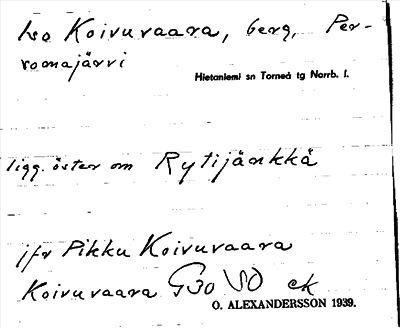 Iso Koivuvaara, berg, Per-
roomajärvi
Hietaniemi sn Torneå tg Norrb. l.
ligg. öster om Rytijänkkä
jfr Pikku Koivuvaara
Koivuvaara G30 VO ek
O. ALEXANDERSSON 1939.